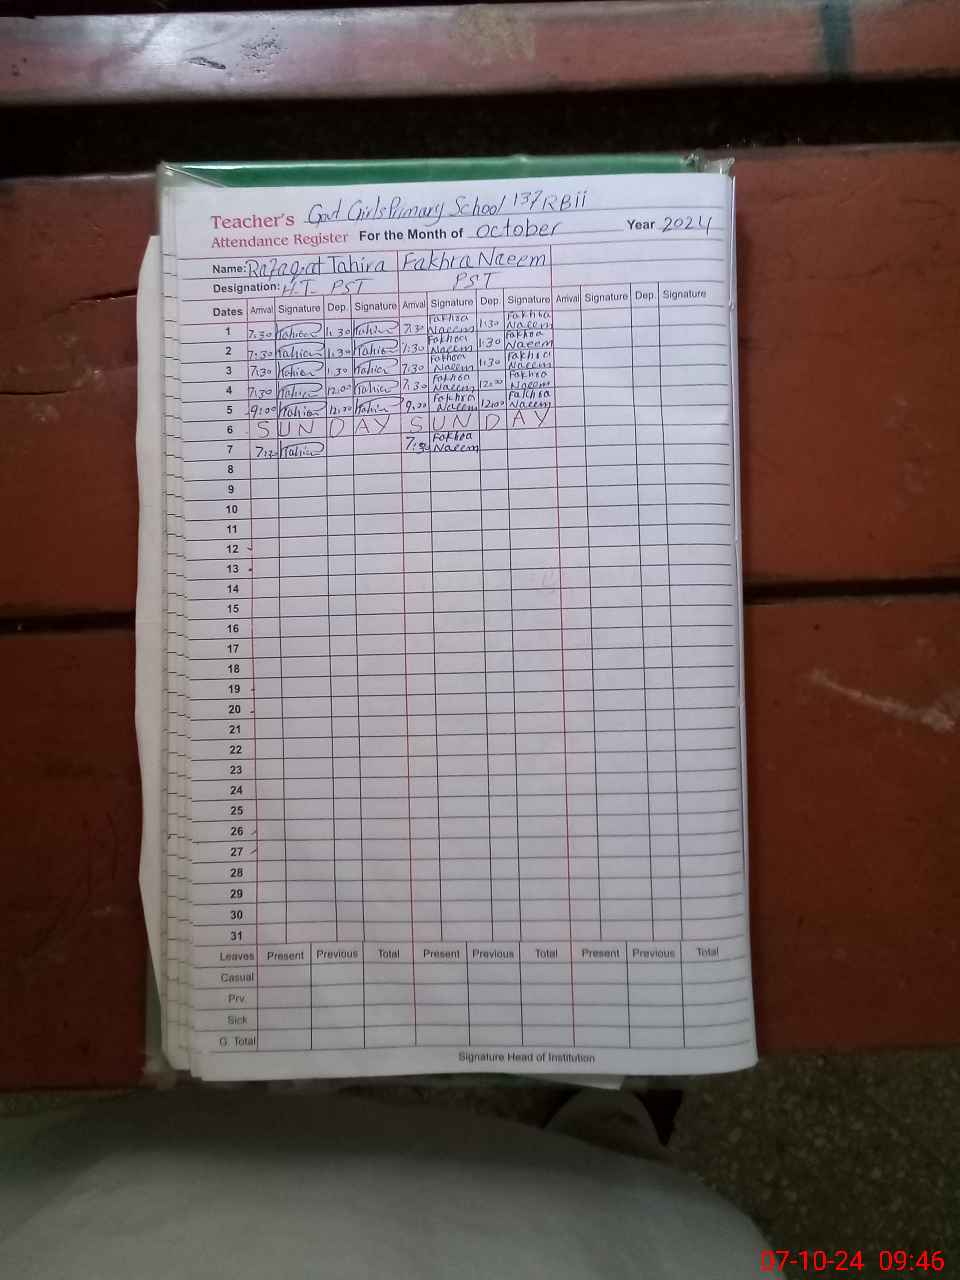 Teacher's Govt Girls Primary School 137 RB ii
Attendance Register For the Month of October Year 2024
Name: Rafaqat Tahira Fakhra Naeem
Designation: H.T. PST PST
Dates Arrival Signature Dep. Signature Arrival Signature Dep. Signature Arrival Signature Dep. Signature
1 7:30 Tahira 1:30 Tahira 7:30 Fakhra Naeem 1:30 Fakhra Naeem
2 7:30 Tahira 1:30 Tahira 7:30 Fakhra Naeem 1:30 Fakhra Naeem
3 7:30 Tahira 1:30 Tahira 7:30 Fakhra Naeem 1:30 Fakhra Naeem
4 7:30 Tahira 12:00 Tahira 7:30 Fakhra Naeem 12:00 Fakhra Naeem
5 9:00 Tahira Tahira 9:00 Fakhra Naeem 12:00 Fakhra Naeem
6 SUNDAY SUNDAY
7 7:30 Tahira 7:30 Fakhra Naeem
8
9
10
11
12
13
14
15
16
17
18
19
20
21
22
23
24
25
26
27
28
29
30
31
Leaves Present Previous Total Present Previous Total Present Previous Total
Casual
Prv.
Sick
G. Total
Signature Head of Institution
07-10-24 09:46